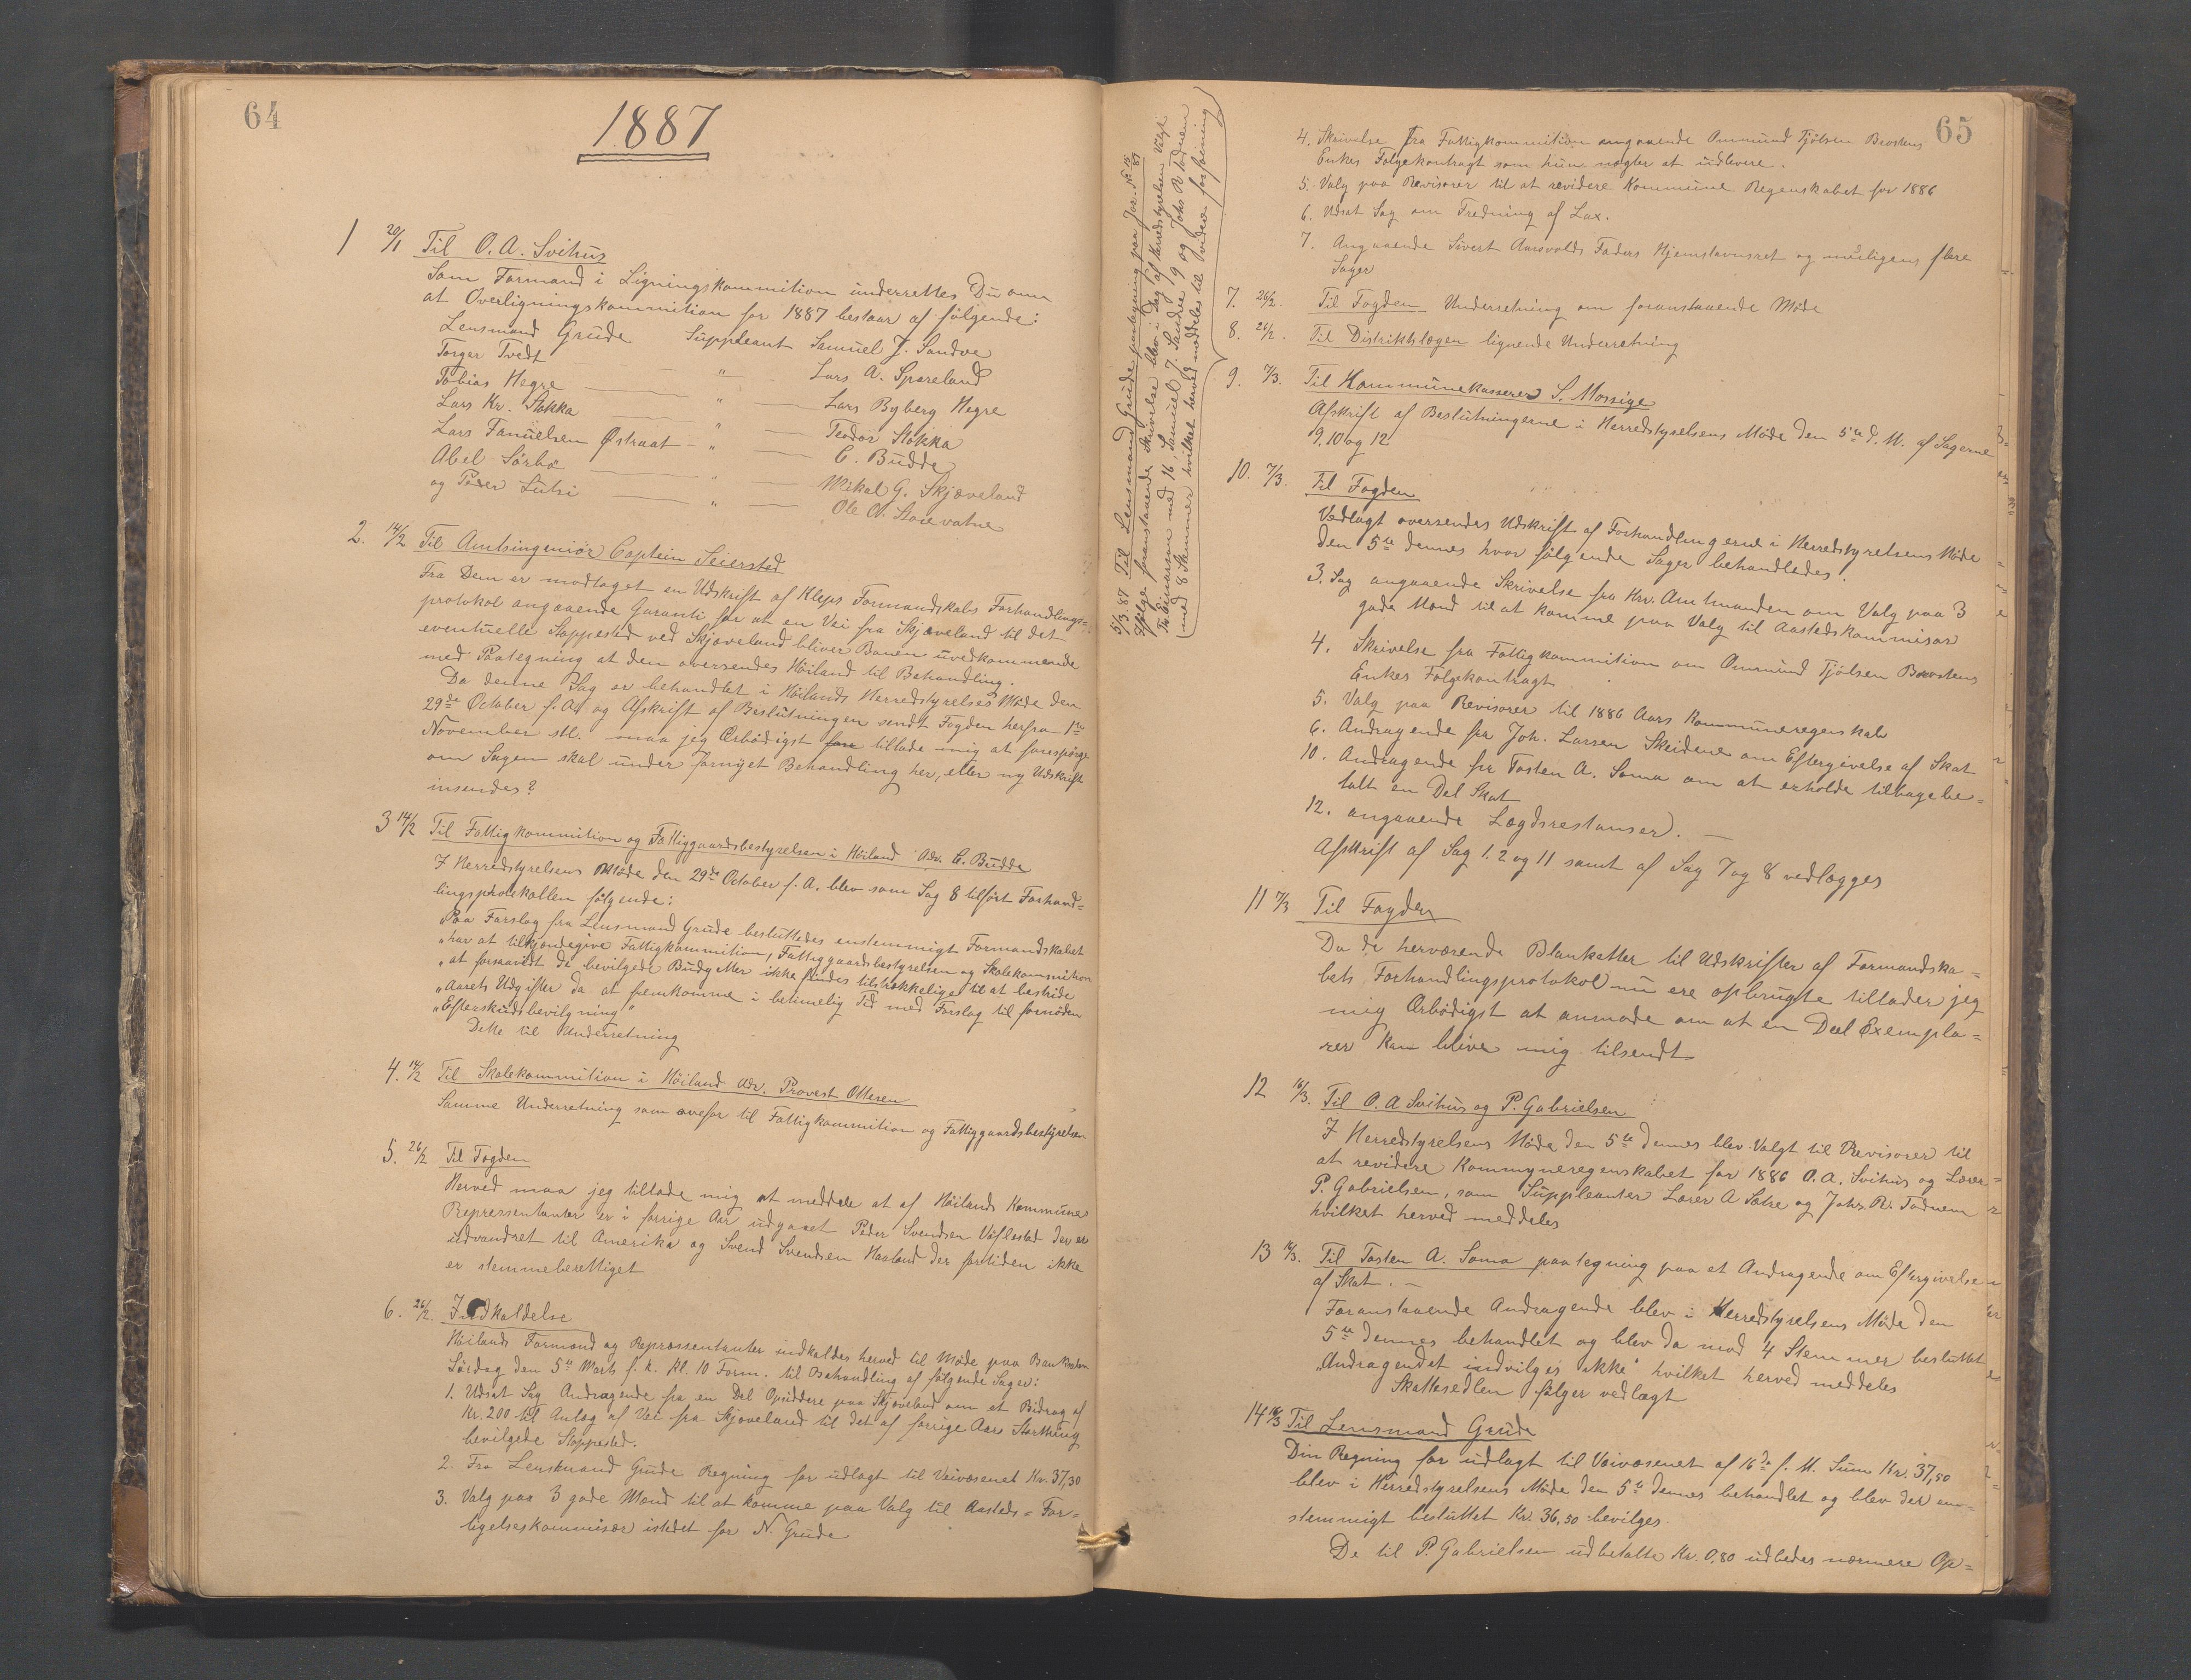 64
1887
1 20/1 Til O. A. Svihus
Som Formand i Ligningskommition underrettes Du om
at Overligningskommition for 1887 bestaar af følgende:
Lensmand Grude Suppleant Samuel J. Sandve
Torger Tvedt — " — Lars A. Spareland
Tobias Hegre — " — Lars Byberg Hegre
Lars Kr. Stokka — " — Teodor Stokka
Lars Tanuelsen Østraat — " — C. Budde
Abel Sørbø — " — Mikal G. Skjæveland
og Peder Lutsi — " — Ole O. Stoievatne
2. 14/2 Til Amtsingeniør Captein Seiersted
Fra Dem er modtaget en Udskrift af Kleps Formandskabs Forhandlings=
protokol angaaende Garanti for at en Vei fra Skjæveland til det
eventuelle Stoppested ved Skjæveland bliver Banen uvedkommende
med Paategning at den oversendes Høiland til Behandling.
Da denne Sag er behandlet i Høilands Herredstyrelses Møde den
29de October f. A. og Afskrift af Beslutningen sendt Fogden herfra 1ste
November sl. maa jeg Ærbødigst tillade mig at forespørge
om Sagen skal under fornyet Behandling her, eller ny Udskrift
insendes?
3 14/2 Til Fattigkommition og Fattiggaardsbestyrelsen i Høiland Adr. C. Budde
I Herredstyrelsens Møde den 29de October f. A. blev som Sag 8 tilført Forhand=
lingsprotokollen følgende:
"Paa Forslag fra Lensmand Grude besluttedes enstemmigt Formandskabet
"har at tilkjendegive Fattigkommition, Fattiggaardsbestyrelsen og Skolekommition
"at forsaavidt de bevilgede Budgetter ikke findes tilstrækkelige til at bestride
"Aarets Udgifter da at fremkomme i betimelig Tid med Forslag til fornøden
"Efterskudsbevilgning"
Dette til Underretning
4. 14/2 Til Skolekommition i Høiland Adr. Provest Ottesen
Samme Underretning som ovefor til Fattigkommition og Fattiggaardsbestyrelsen
5. 26/2 Til Fogden
Herved maa jeg tillade mig at meddele at af Høilands Kommunes
Repressentanter er i forrige Aar udgaaet Peder Svendsen Vaflestad der er
udvandret til Amerika og Svend Svendsen Haaland der fortiden ikke
er stemmeberettiget
6. 26/2. Indkaldelse
Høilands Formænd og Repræssentanter indkaldes herved til Møde paa
Lørdag den 5te Marts f. k. kl. 10 Form. til Behandling af følgende Sager:
1. Udsat Sag Andragende fra en Del Opsiddere paa Skjæveland om et Bidrag af
Kr. 200 til Anlæg af Vei fra Skjæveland til det af forrige Aars Storthing
bevilgede Stoppested.
2. Fra Lensmand Grude Regning for udlagt til Veivæsenet Kr. 37,50
3. Valg paa 3 gode Mænd til at komme paa Valg til Aasteds= For=
ligelseskommisær istedet for N. Grude
5/3 87 Til Lensmand Grude paategning paa Jor. No 15/87
Ifølge foranstaaende Skrivelse blev i Dag af Herredstyrelsen Valgt
T. Einarson med 16, Samuel J. Sandve 9 og Johs R Todnem
med 8 Stemmer hvilket herved meddeles til videre forføining
65
4. Skrivelse fra Fattigkommition angaaende Ommund Tjølsen Brostens
Enkes Følgekontragt som hun nægter at udlevere.
5. Valg paa Revisorer til at revidere Kommune Regenskabet for 1886
6. Udsat Sag om Fredning af Lax.
7. Angaaende Sivert Aarsvolds Faders Hjemstavnsret og muligens flere
Sager
7. 26/2. Til Fogden Underretning om foranstaaende Møde
8. 26/2. Til Distriktslægen lignende Underretning
9. 7/3. Til Kommunekasserer S. Mossige
Afskrift af Beslutningerne i Herredstyrelsens Møde den 5te d. M. af Sagerne
9, 10 og 12
10. 7/3. Til Fogden
Vedlagt oversendes Udskrift af Forhandlingerne i Herredstyrelsens Møde
den 5te dennes hvor følgende Sager behandledes.
3. Sag angaaende Skrivelse fra Hrr. Amtmanden om Valg paa 3
gode Mænd til at komme paa Valg til Aastedskommisær
4. Skrivelse fra Fattigkommition om Ommund Tjølsen Brostens
Enkes Følgekontragt
5. Valg paa Revisorer til 1886 Aars Kommuneregenskab
6. Andragende fra Joh. Larsen Skeidene om Eftergivelse af Skat
10. Andragende fra Tosten A. Soma om at erholde tilbagebe=
talt en Del Skat
12. angaaende Lægdsrestanser). —
Afskrift af Sag 1. 2 og 11 samt af Sag 7 og 8 vedlægges
11 7/3 Til Fogden
Da de herværende Blanketter til Udskrifter af Formandska=
bets Forhandlingsprotokol nu ere opbrugte tillader jeg
mig Ærbødigst at anmode om at en Deel Exempla=
rer kan blive mig tilsendt
12 16/3. Til O. A Svihus og P. Gabrielsen
I Herredstyrelsens Møde den 5te dennes blev Valgt til Revisorer til
at revidere Kommuneregenskabet for 1886 O. A. Svihus og Lærer
P. Gabrielsen, som Suppleanter Lærer A Sætre og Johs. R. Todnem
hvilket herved meddeles
13 16/3. Til Tosten A. Soma paategning paa et Andragende om Eftergivelse
af Skat. —
Foranstaaende Andragende blev i Herredstyrelsens Møde den
5te dennes behandlet og blev da mod 4 Stemmer besluttet
"Andragendet indvilges ikke" hvilket herved meddeles
Skattesedlen følger vedlagt
14 16/3 Til Lensmand Grude
Din Regning for udlagt til Veivæsenet af 16de f. M. Sum Kr. 37,50
blev i Herredstyrelsens Møde den 5te dennes behandlet og blev der en=
stemmigt besluttet Kr. 36,50 bevilges.
De til P. Gabrielsen udbetalte Kr. 0,80 udbedes nærmere Op=